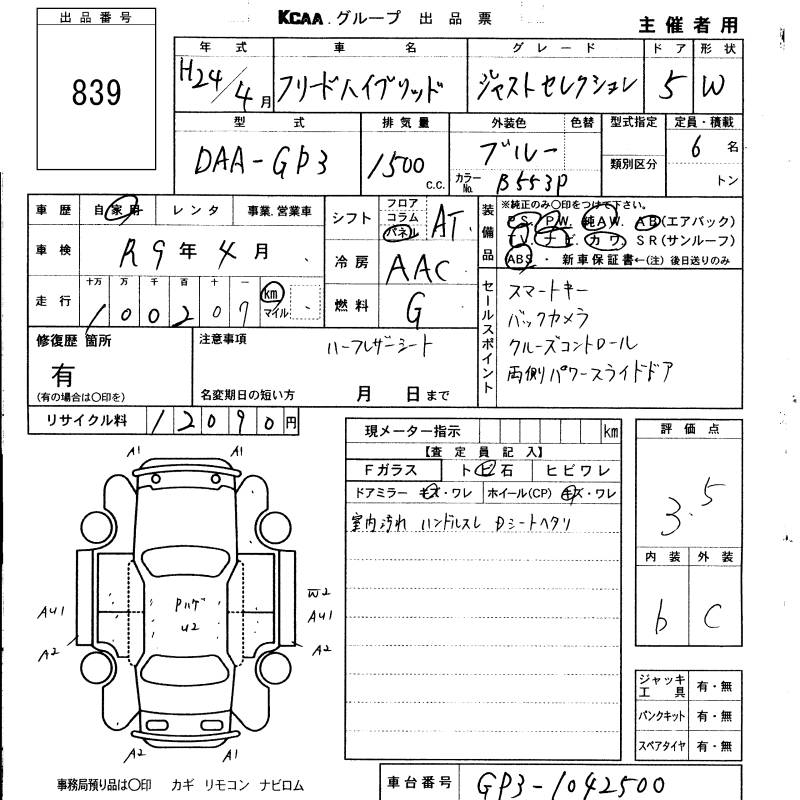 出品番号
839
KCAA グループ 出品票
主催者用
年式 車名 グレード ドア 形状
H24/4月 フリードハイブリッド ジャストセレクション 5 W
型式 排気量 外装色 色替 型式指定 定員・積載
DAA-GP3 1500 c.c. ブルー 6名
カラーNo. B553P 類別区分 トン
車歴 自家用 レンタ 事業.営業車
車検 R9年4月
走行 十万 万 千 百 十 一
100207 km マイル
シフト フロア コラム パネル AT
冷房 AAC
燃料 G
装備品 ※純正のみ〇印をつけて下さい。
PS. P.W. 純AW. AB(エアバック)
TV. ナビ. カワ. SR(サンルーフ)
ABS・新車保証書←(注)後日送りのみ
セールスポイント
スマートキー
バックカメラ
クルーズコントロール
両側パワースライドドア
修復歴 箇所
有
(有の場合は〇印を)
注意事項
ハーフレザーシート
名変期日の短い方 月 日まで
リサイクル料 12090円
現メーター指示 km
【査定員記入】
Fガラス トビ石 ヒビワレ
ドアミラー キズ・ワレ ホイール(CP) キズ・ワレ
室内汚れ ハンドルスレ Dシートヘタリ
評価点
3.5
内装 外装
b C
ジャッキ工具 有・無
パンクキット 有・無
スペアタイヤ 有・無
A1 A1
Pハゲ
U2
AU1 A2
W2
AU1
A2
A2 A1
事務局預り品は〇印 カギ リモコン ナビロム
車台番号 GP3-1042500